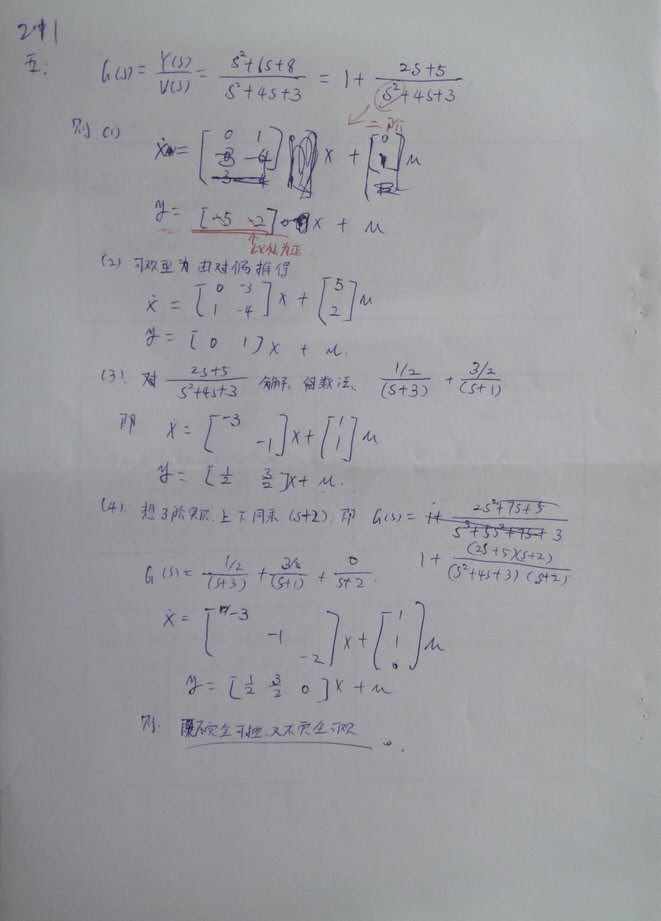 2011
五:
G(s) = Y(s)/U(s) = (s²+6s+8)/(s²+4s+3) = 1 + (2s+5)/(s²+4s+3)
= 阶
则 (1)
ẋ = [0 1; -3 -4] x + [0; 1] u
y = [-5 -2] x + u
此处为正
(2) 可观型为 由对偶推得
ẋ = [0 -3; 1 -4] x + [5; 2] u
y = [0 1] x + u.
(3). 对 (2s+5)/(s²+4s+3) 分解. 留数法. (1/2)/(s+3) + (3/2)/(s+1)
即 ẋ = [-3 ; -1] x + [1; 1] u
y = [1/2 3/2] x + u.
(4). 想3阶实现. 上下同乘 (s+2). 即 G(s) = 1+ (2s²+7s+5)/(s³+5s²+7s+3)
1 + (2s+5)(s+2)/((s²+4s+3)(s+2))
G(s) = (1/2)/(s+3) + (3/2)/(s+1) + 0/(s+2).
ẋ = [-3 ; -1 ; -2] x + [1; 1; 0] u
y = [1/2 3/2 0] x + u
则. 既不完全可控. 又不完全可观.